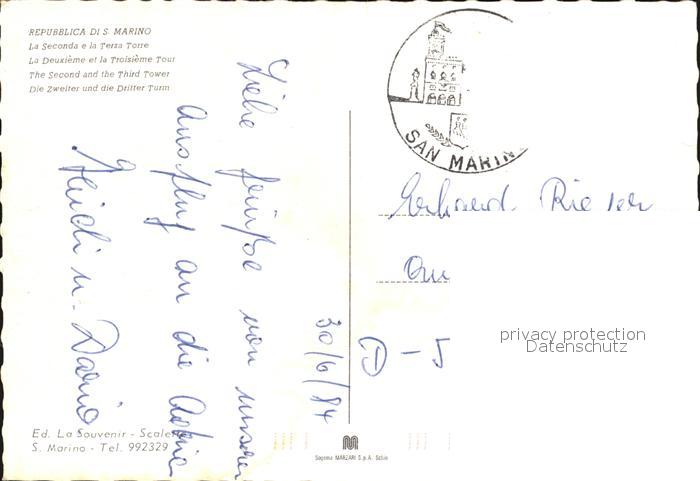 REPUBBLICA DI S. MARINO
La Seconda e la Terza Torre
La Deuxième et la Troisième Tour
The Second and the Third Tower
Die Zweiter und die Dritter Turm
SAN MARIN
30/6/84
Liebe Grüße von unserer
Ausflug an die Adria
Heidi u. Dario
Erhard
D-5
privacy protection
Datenschutz
Ed. La Souvenir - Scale
S. Marino - Tel. 992329
Sagoma MARZARI S.p.A. Schio